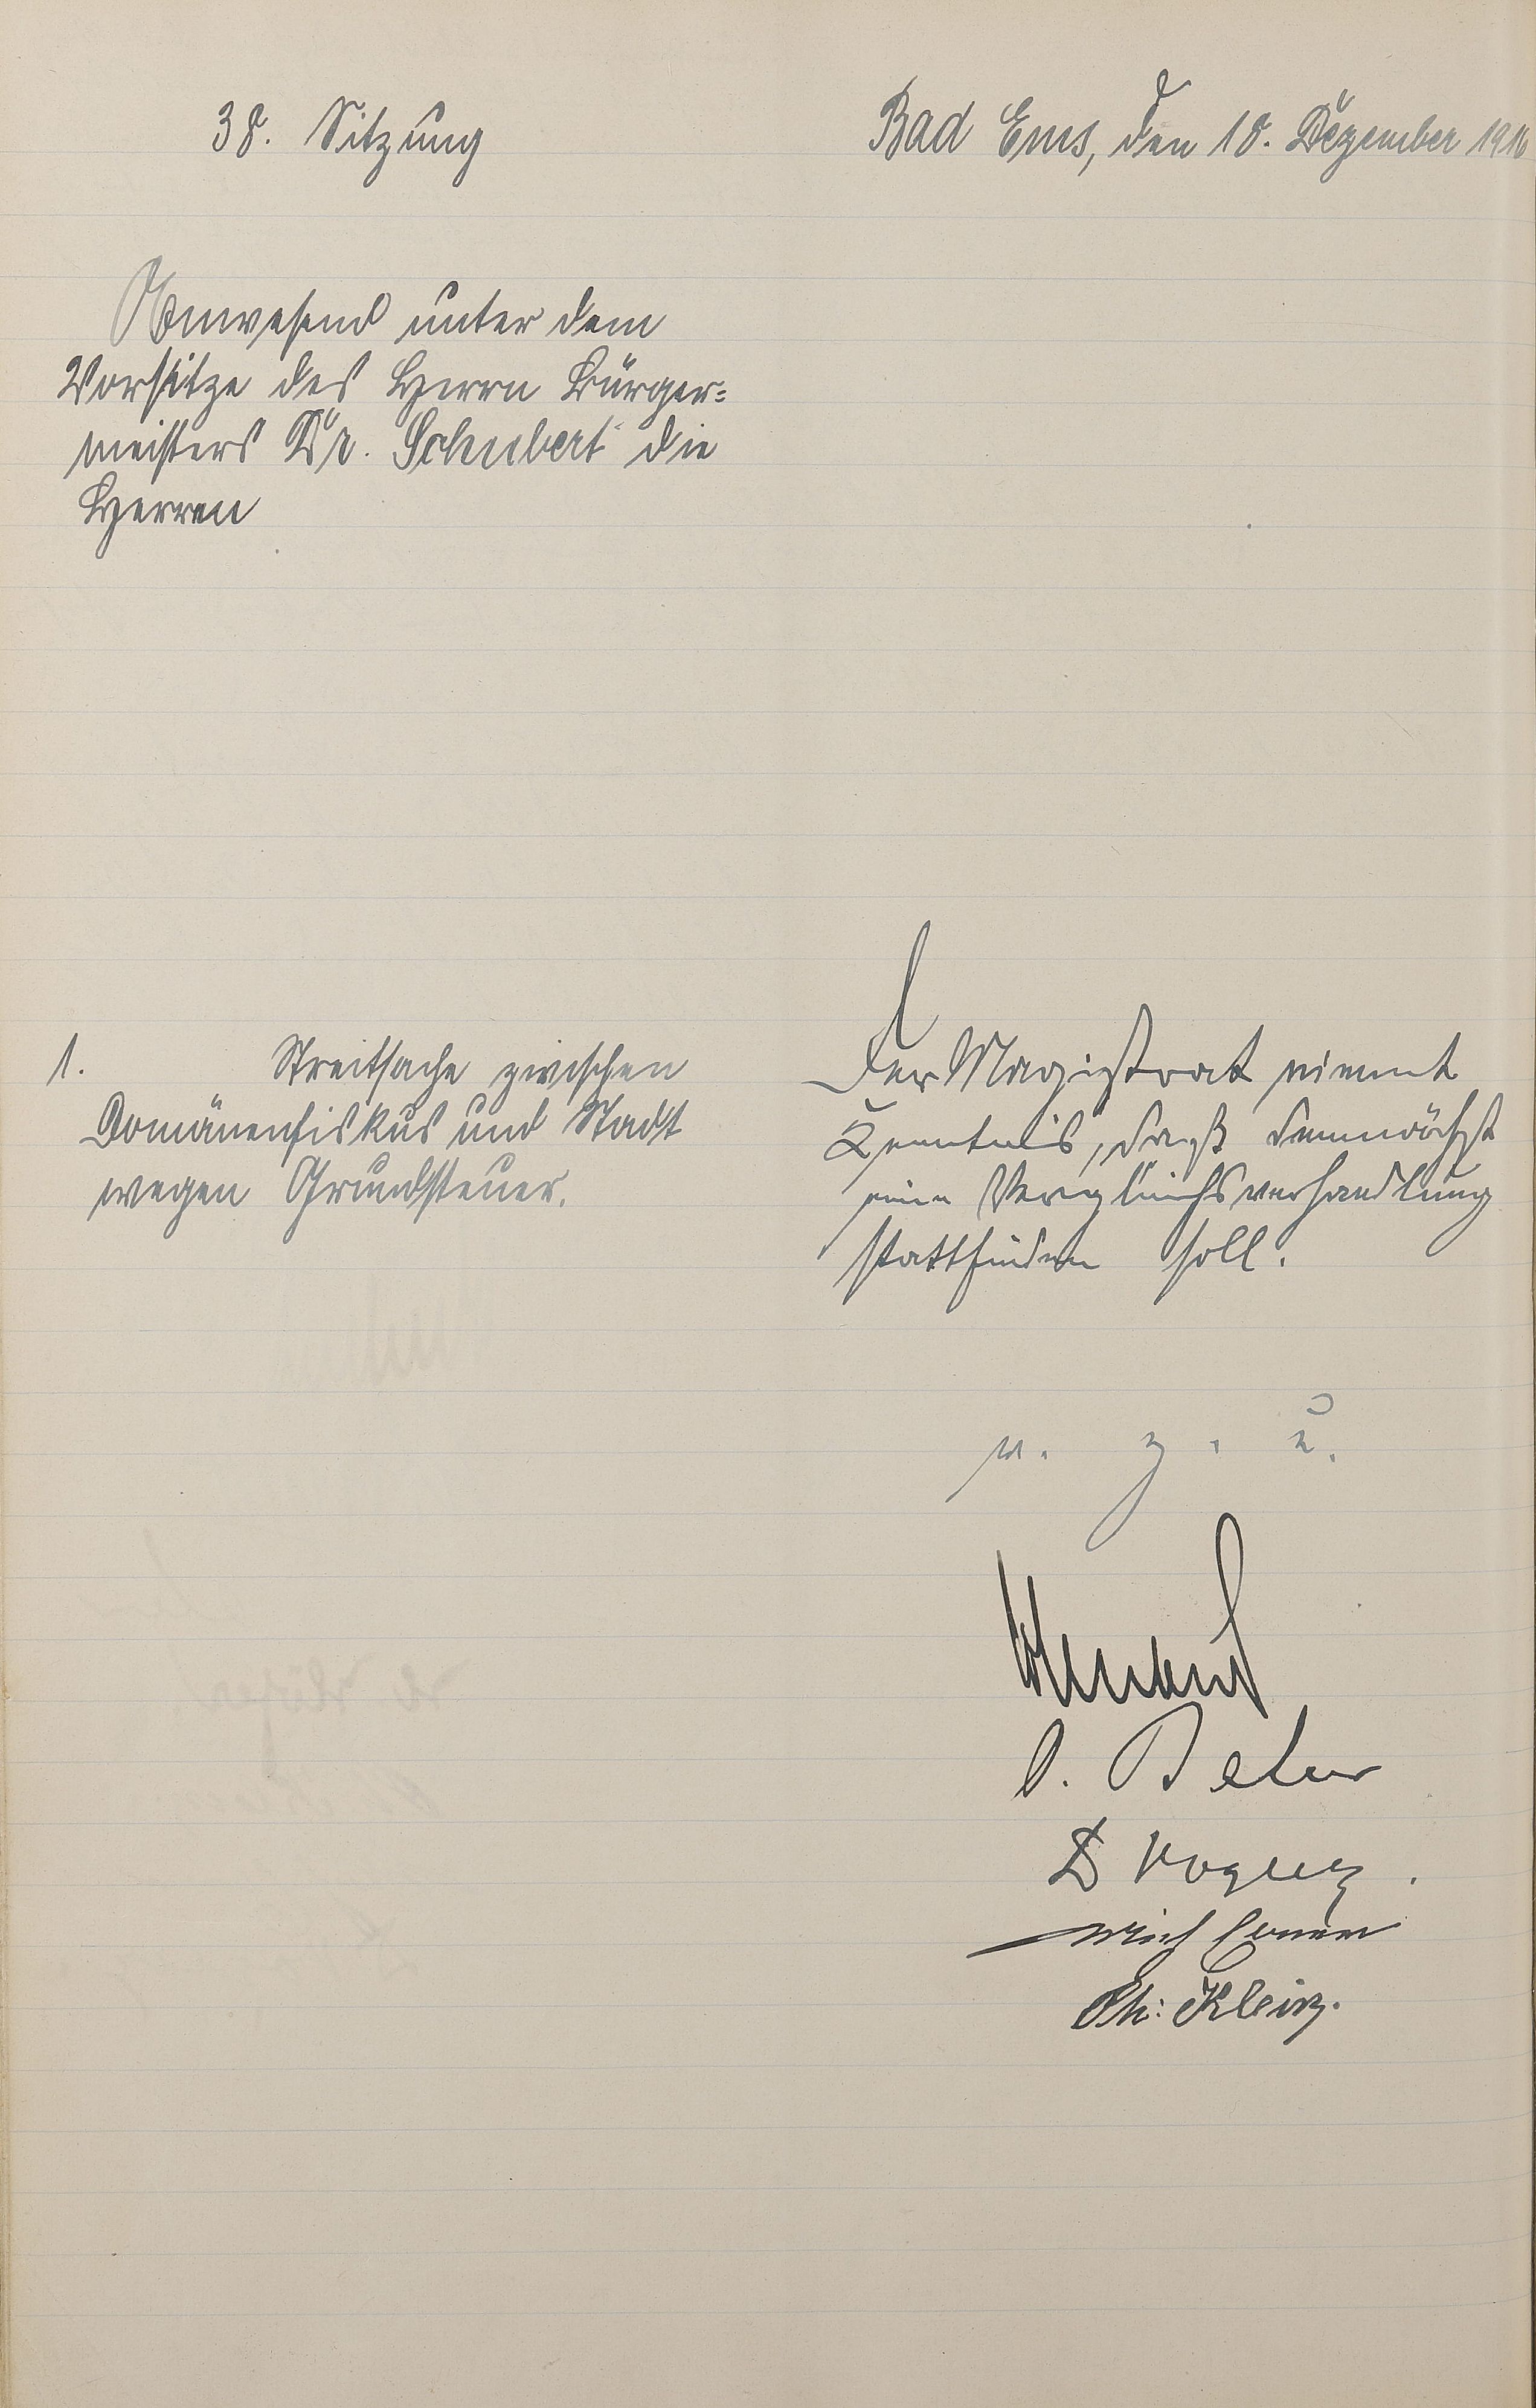 38. Sitzung
Bad Ems, den 18. Dezember 1916
Anwesend unter dem
Vorsitze des Herrn Bürger=
meisters Dr. Schubert die
Herren
1. Streitsache zwischen
Domänenfiskus und Stadt
wegen Grundsteuer.
Der Magistrat nimmt
Kenntnis, daß demnächst
eine Vergleichsverhandlung
stattfinden soll.
v. g. u.
Schubert
Ph: Klein.